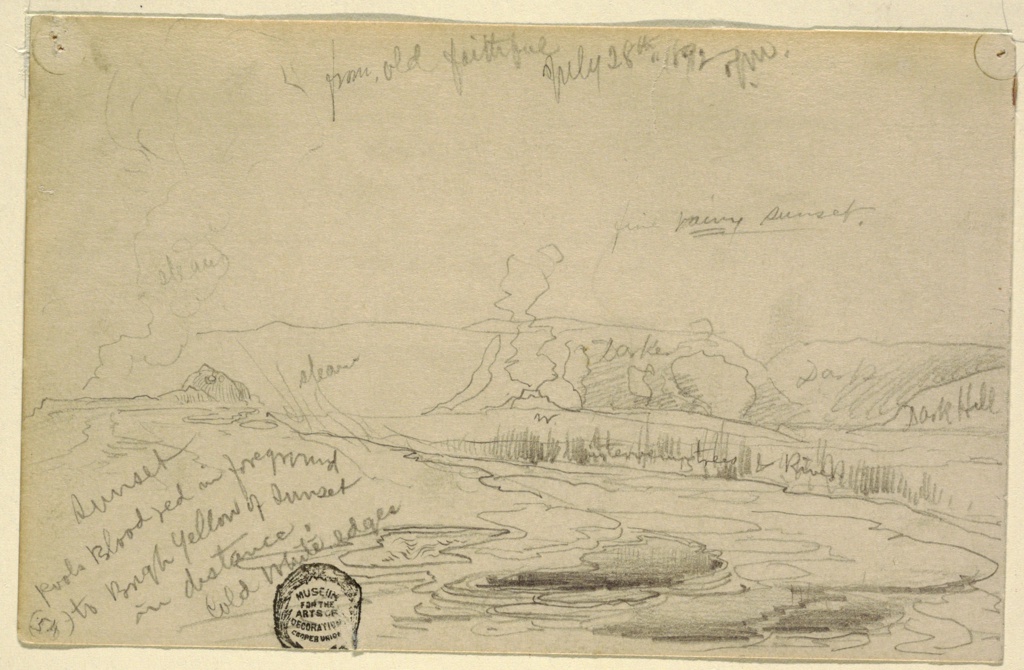 from, old faithful July 28th, 1892 8 pm.
fine rainy sunset.
steam
steam
Darker
Dark
Dark Hill
intervening trees & River
Sunset
Pools Blood red in foreground
to Bright Yellow of Sunset
in distance
Cold White edges
MUSEUM
FOR THE
ARTS OF
DECORATION
COOPER UNION